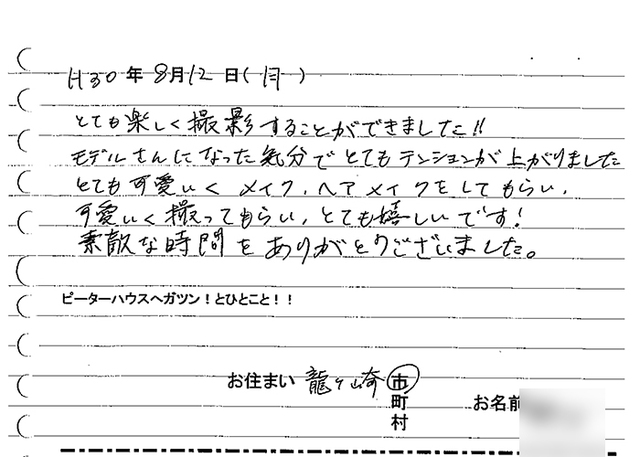 H30年8月12日(月)
とても楽しく撮影することができました!!
モデルさんになった気分でとてもテンションが上がりました
とても可愛いくメイク、ヘアメイクをしてもらい、
可愛いく撮ってもらい、とても嬉しいです!
素敵な時間をありがとうございました。
ピーターハウスへガツン!とひとこと!!
お住まい 龍ヶ崎 市 お名前
町
村